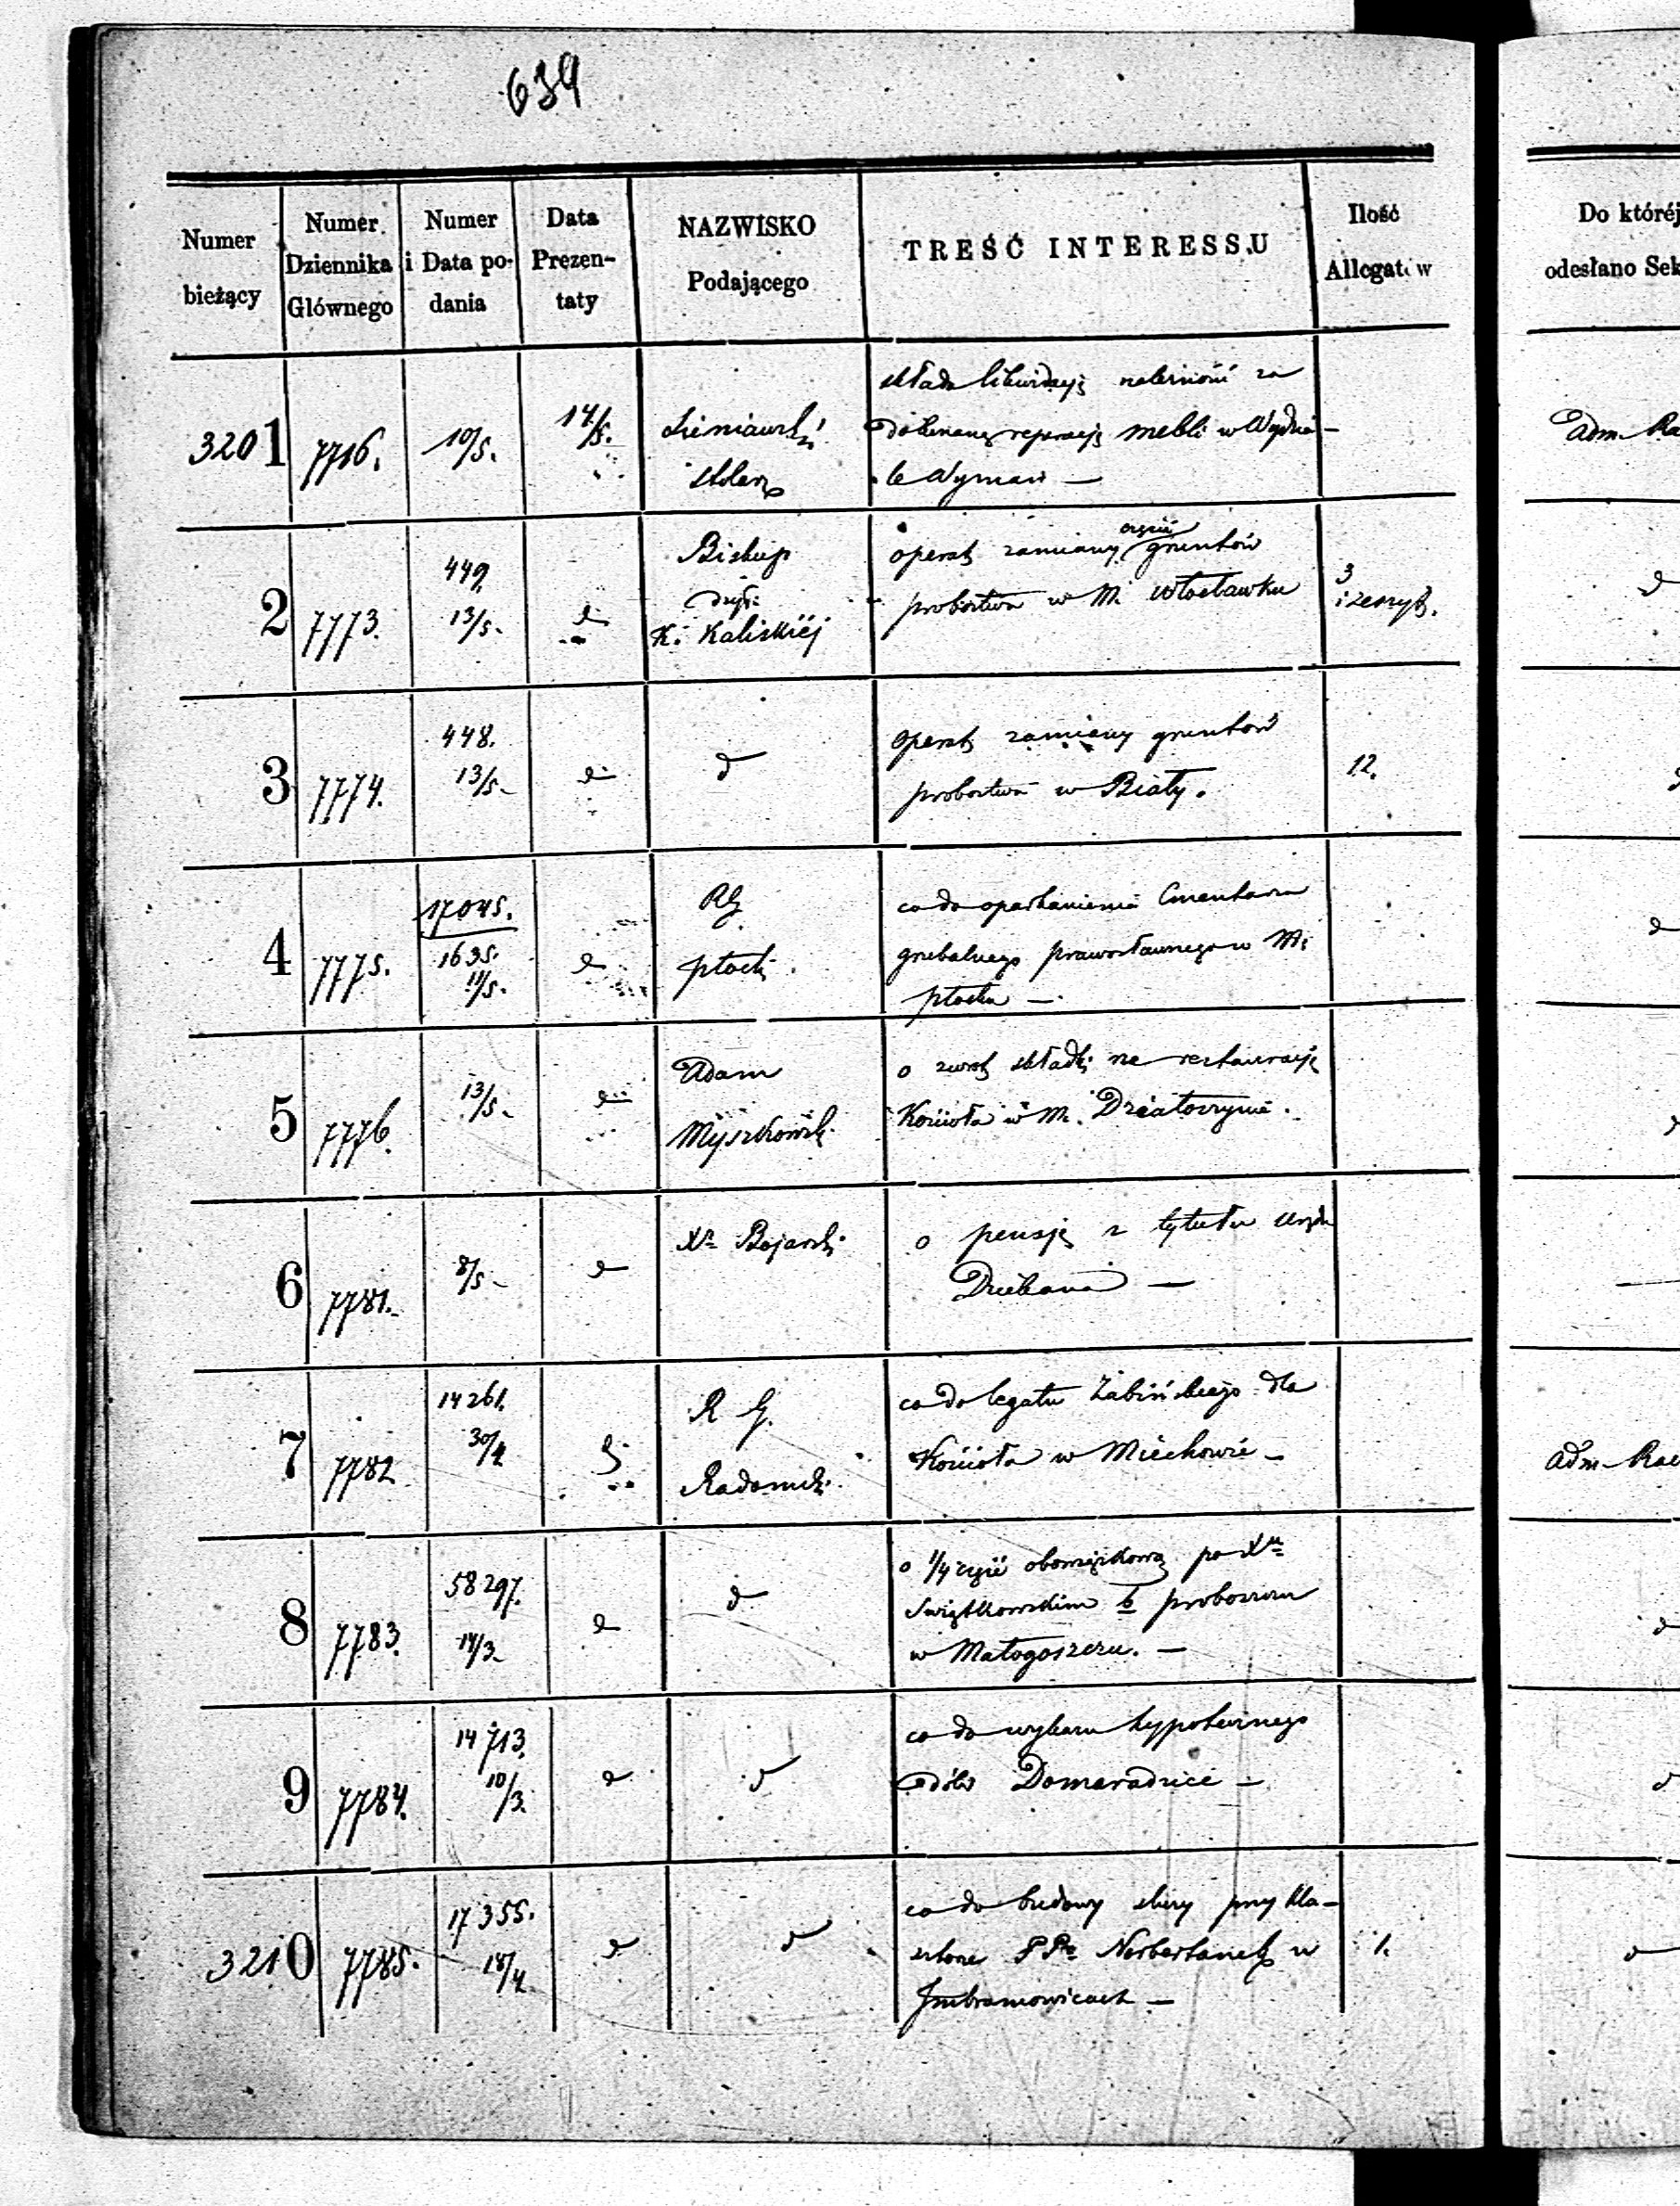 634
Numer bieżący
Numer Dziennika Głównego
Numer i Data podania
Data Prezentaty
NAZWISKO Podającego
TREŚĆ INTERESSU
Ilość Allegatów
Do któréj
odesłano Sek
3201 7716. 10/5. 14/5. Sieniawski stolarz
składa likwidacyą należność za
dokonaną reperacyę mebli w Wydzia-
le Wyznań —
Adm. Ra
2 7773. 449. 13/5. d Biskup dyec: K. Kaliskiéj
operat zamiany części gruntów
probostwa w M. Włocławku
3 i zeszyt.
d
3 7774. 448. 13/5. d d
operat zamiany gruntów
probostwa w Biały.
12.
4 7775. 17045. 1635. 11/5. d RG Płocki.
co do oparkanienia Cmentarza
grzebalnego prawosławnego w M.
Płocku —
d
5 7776. 13/5. d Adam Myszkowski
o zwrot składki na restauracyę
Kościoła w M. Działoszynie.
6 7781. 8/5. d Xdz Bojarski
o pensję z tytułu urzędu
Dziekana —
7 7782 14261. 30/4 d R G. Radomski.
co do legatu Żabińskiego dla
Kościoła w Miechowie —
Adm. Ra
8 7783. 58297. 14/3. d d
o 1/4 część obowiązkową po Xdzu
Swiątkowskim b proboszczu
w Małogoszczu. —
d
9 7784. 14713. 10/3. d d
co do wykazu hypotecznego
dóbr Domaradzice —
d
3210 7785. 17355. 18/4 d d
co do budowy śluzy przy kla-
sztorze PP. Norbertanek w
Imbramowicach —
1.
d